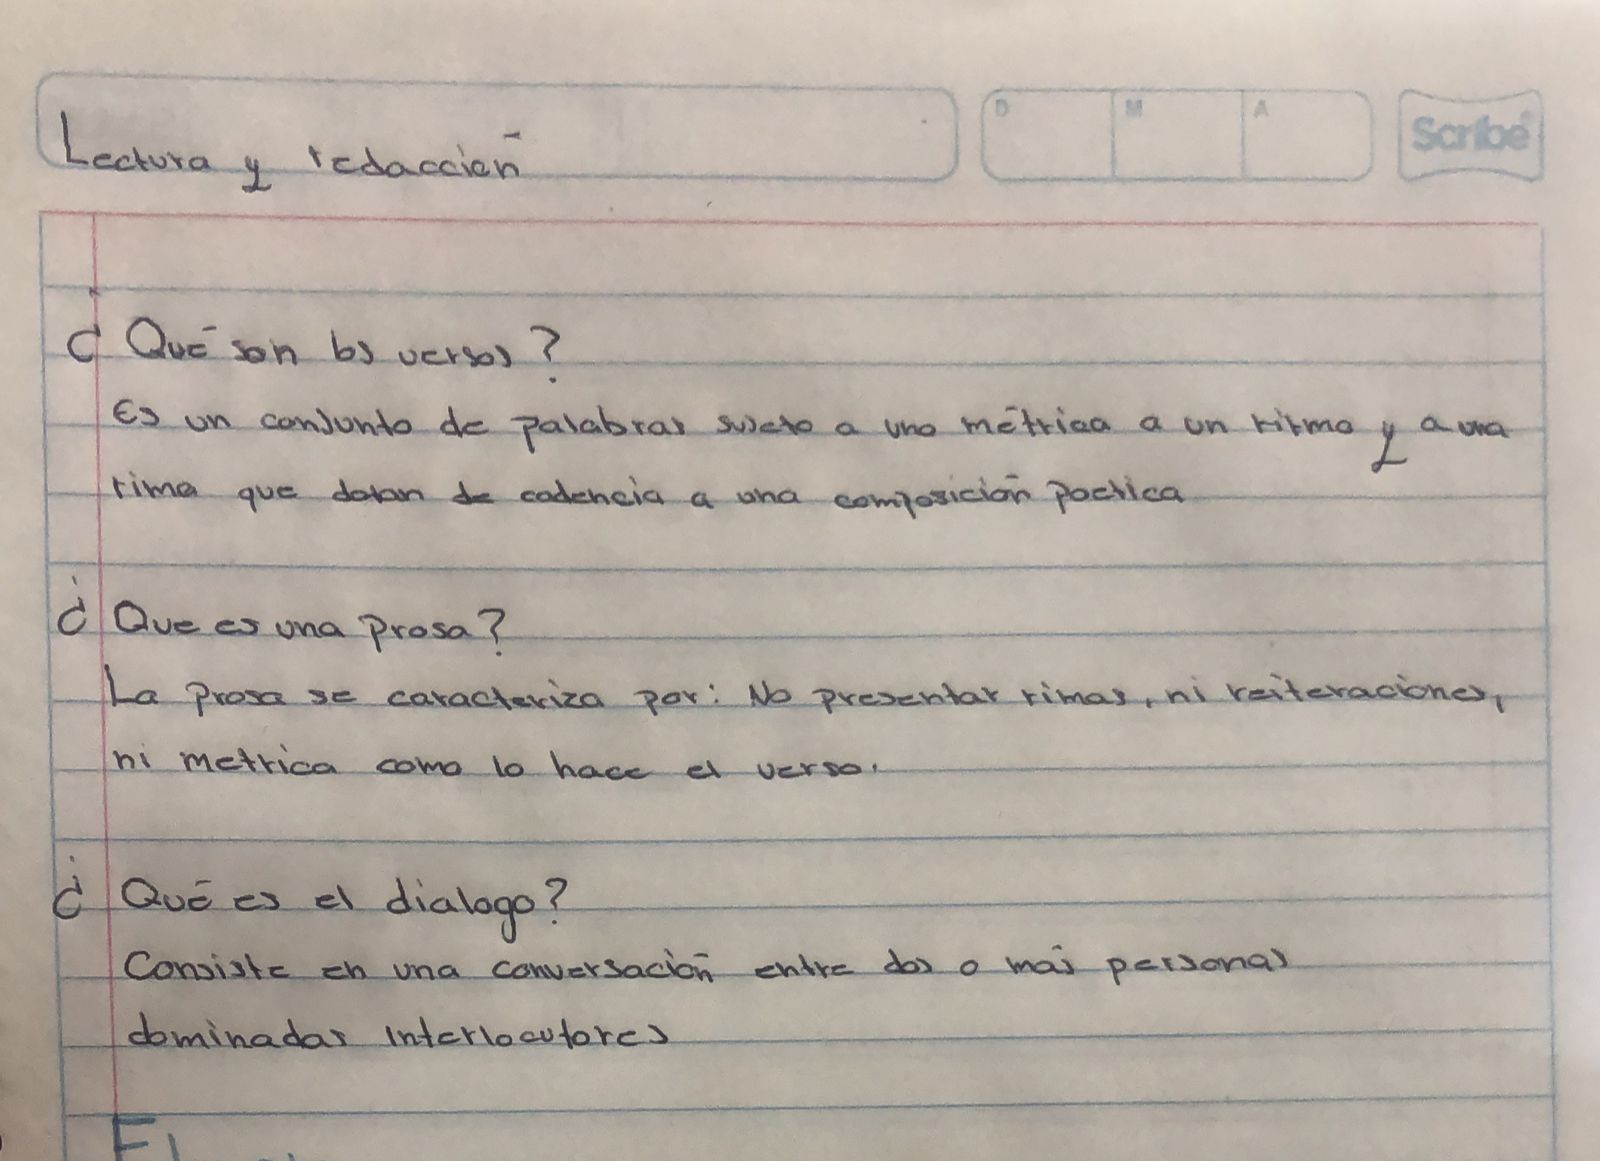 Lectura y redacción
D M A
Scribe
¿Qué son los versos?
Es un conjunto de palabras sujeto a una métrica a un ritmo y a una
rima que dotan de cadencia a una composición poetica
¿Que es una prosa?
La prosa se caracteriza por: No presentar rimas, ni reiteraciones,
ni metrica como lo hace el verso.
¿Qué es el dialogo?
Consiste en una conversación entre dos o más personas
dominadas interlocutores